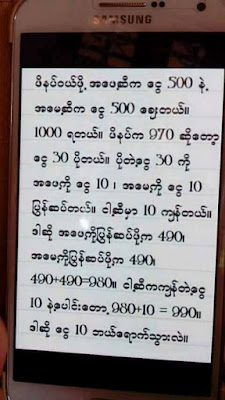 ဖိနပ်ဝယ်ဖို့ အဖေဆီက ငွေ 500 နဲ့
အမေဆီက ငွေ 500 ချေးတယ်။
1000 ရတယ်။ ဖိနပ်က 970 ဆိုတော့
ငွေ 30 ပိုတယ်။ ပိုတဲ့ငွေ 30 ကို
အဖေ့ကို ငွေ 10 ၊ အမေ့ကို ငွေ 10
ပြန်ဆပ်တယ်။ ငါ့ဆီမှာ 10 ကျန်တယ်။
ဒါဆို အဖေ့ကိုပြန်ဆပ်ဖို့က 490၊
အမေ့ကိုပြန်ဆပ်ဖို့က 490၊
490+490=980။ ငါ့ဆီကကျန်တဲ့ငွေ
10 နဲ့ပေါင်းတော့ 980+10 = 990။
ဒါဆို ငွေ 10 ဘယ်ရောက်သွားလဲ။